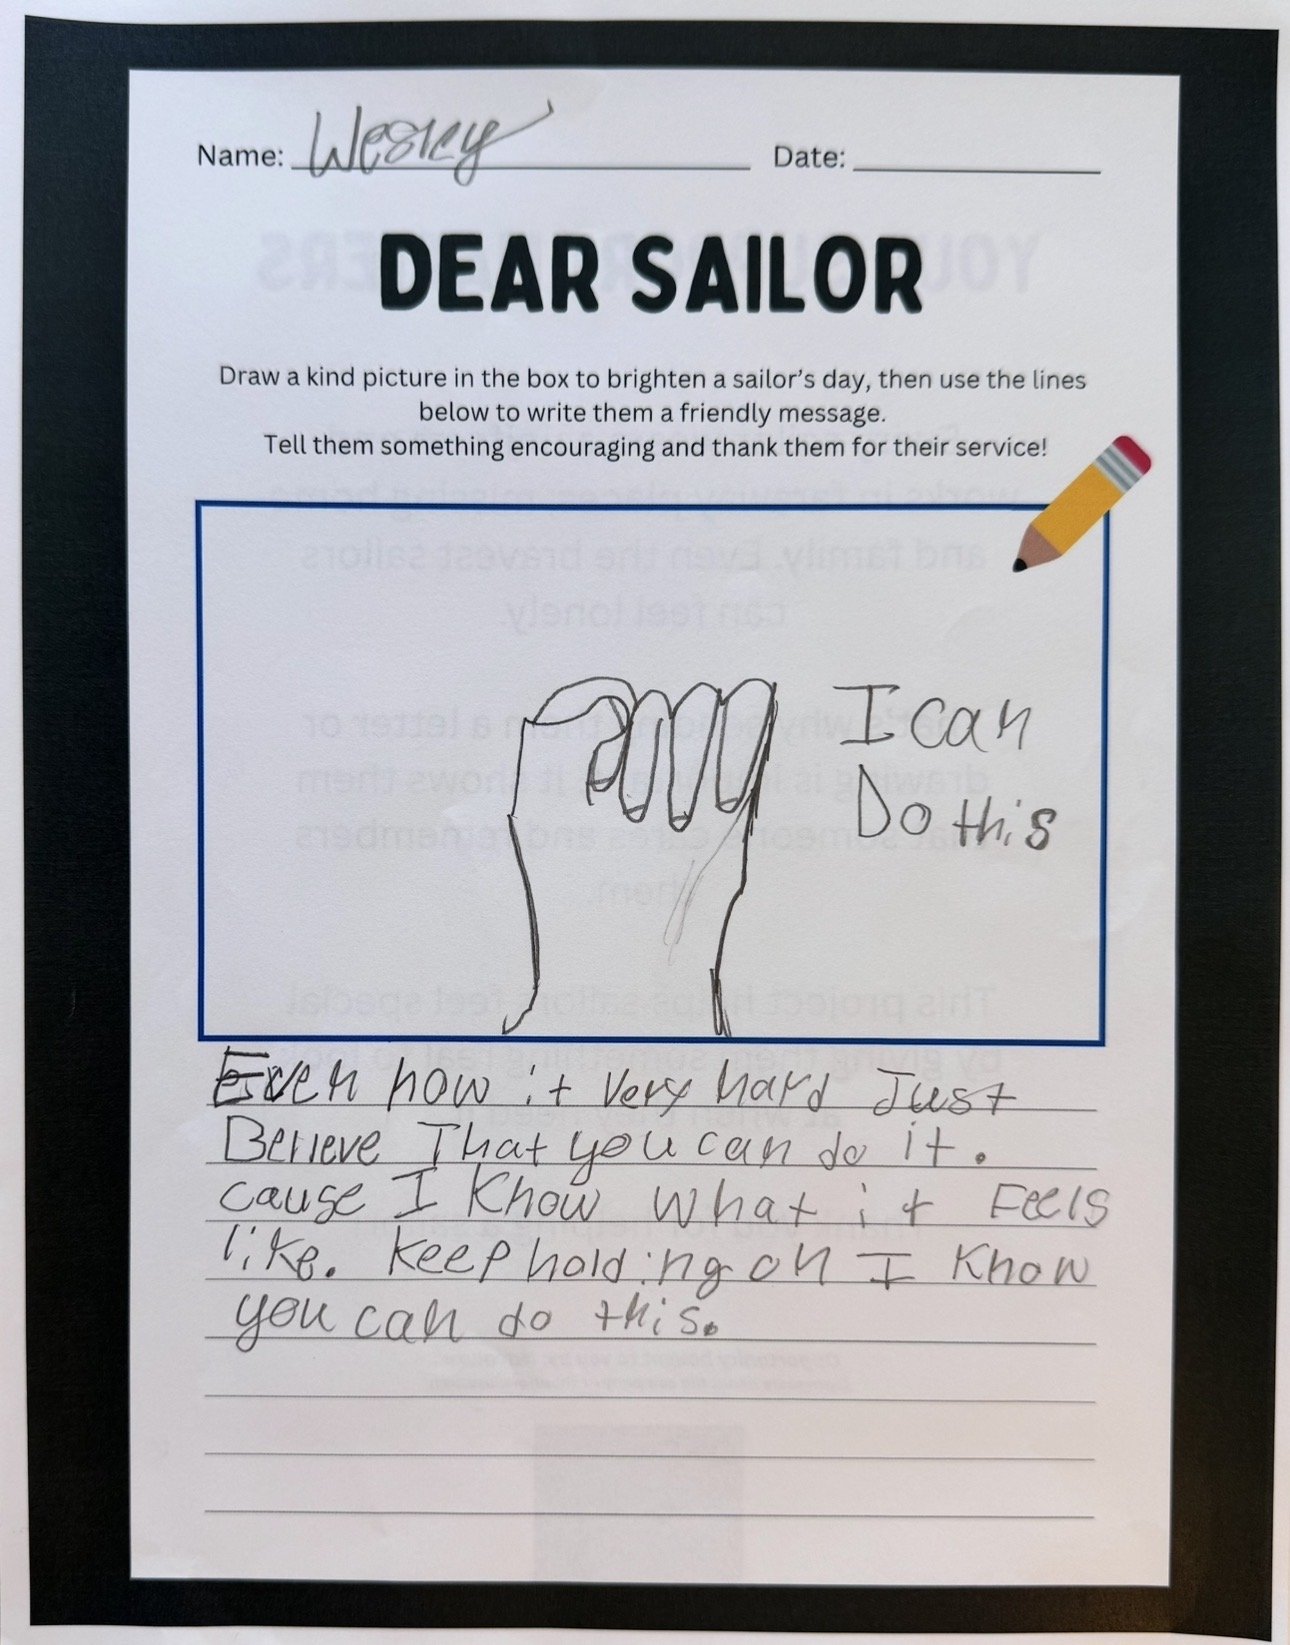 Name: Wesley Date:
DEAR SAILOR
Draw a kind picture in the box to brighten a sailor's day, then use the lines
below to write them a friendly message.
Tell them something encouraging and thank them for their service!
I can
Do this
Even how it very hard Just
Believe That you can do it.
cause I Know what it Feels
like. keep holding on I Know
you can do this.